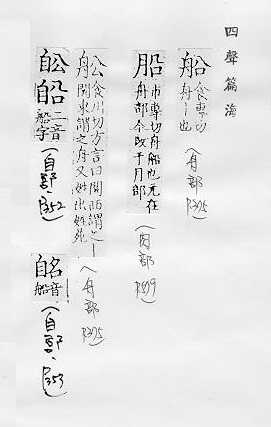 四聲篇海
船 食專切
舟丨也
(舟部
P.375)
市專切舟船也元在
舟部今改于月部
(肉部
舩 食川切方言曰關西謂之丨
關東謂之舟又姓出姓苑
(舟部
P.375)
二音
船字
(自部、P.352)
船音
(自部、P.353)